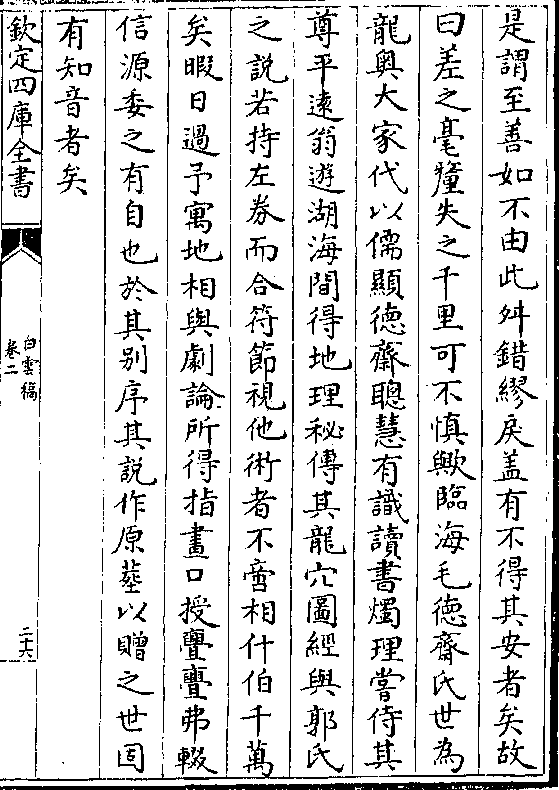 是謂至善如不由此舛錯繆戾盖有不得其安者矣故
曰差之毫釐失之千里可不慎歟臨海毛徳齋氏世為
龍奥大家代以儒顯徳齋聰慧有識讀書燭理嘗侍其
尊平逺翁遊湖海間得地理秘傳其龍穴圖經與郭氏
之説若持左券而合符節視他術者不啻相什伯千萬
矣暇日過予寓地相與劇論所得指畫口授亹亹弗輟
信源委之有自也於其别序其説作原墓以贈之世固
有知音者矣
欽定四庫全書
白雲稿
卷二
二六